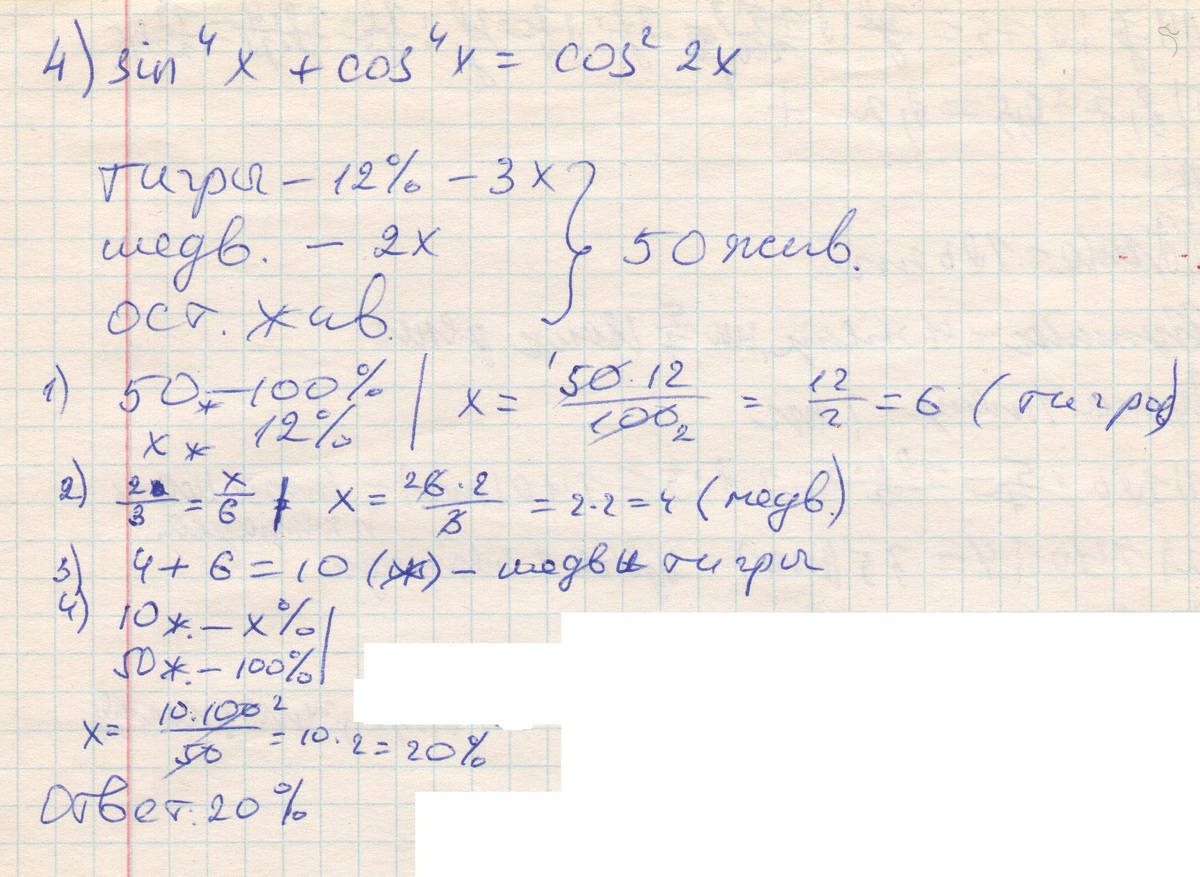 4) sin⁴ x + cos⁴ x = cos² 2x
тигры – 12% – 3x
медв. – 2x
ост. жив.
50 жив.
1) 50ж – 100%
x ж 12%
x = 50·12/100 2 = 12/2 = 6 (тигров)
2) 2/3 = x/6 x = 2 6·2/3 = 2·2 = 4 (медв.)
3) 4 + 6 = 10 (ж) – медв и тигры
4) 10 ж. – x%
50 ж. – 100%
x = 10·100 2/50 = 10·2 = 20%
Ответ: 20%